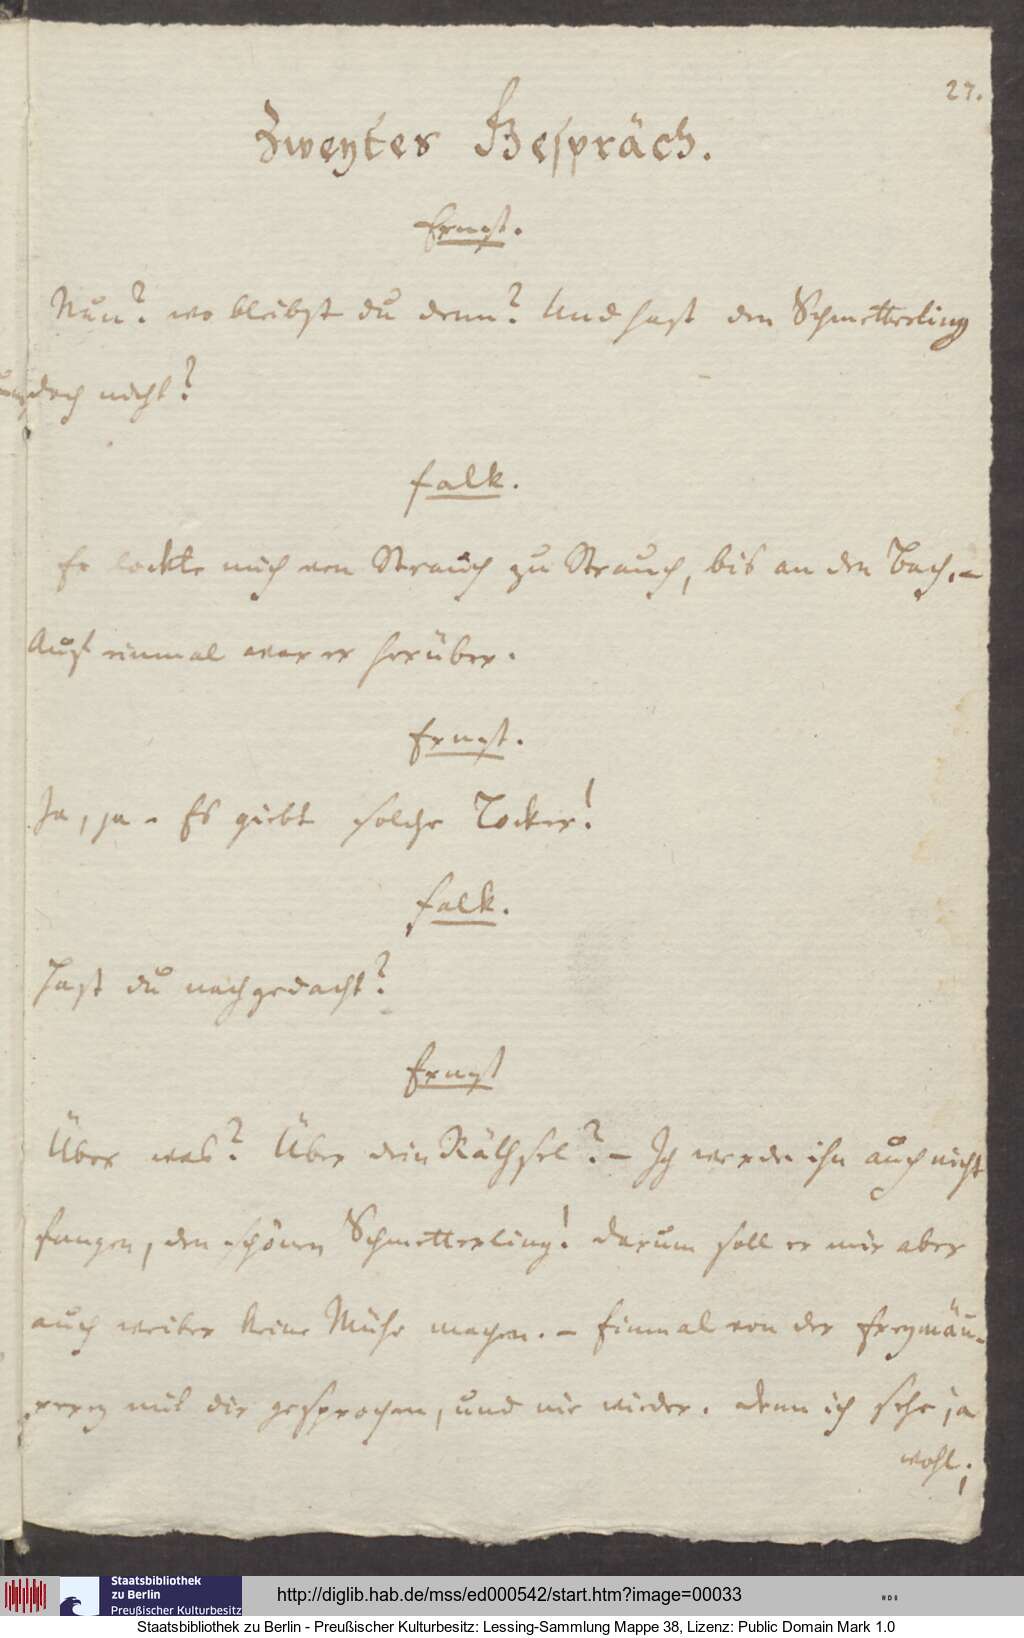 27.
Zweytes Gespräch.
Ernst.
Nun? wo bleibst du denn? Und hast den Schmetterling
doch nicht?
Falk.
Er lockte mich von Strauch zu Strauch, bis an den Bach. –
Auf einmal war er herüber.
Ernst.
Ja, ja – Es giebt solche Locker!
Falk.
Hast du nachgedacht?
Ernst
Über was? Über dein Räthsel? – Ich werde ihn auch nicht
fangen, den schönen Schmetterling! Darum soll er mir aber
auch weiter keine Mühe machen. – Einmal von der Freymäu-
rerey mit dir gesprochen, und nie wieder. Denn ich sehe ja
wohl;
Staatsbibliothek
zu Berlin
Preußischer Kulturbesitz
http://diglib.hab.de/mss/ed000542/start.htm?image=00033
Staatsbibliothek zu Berlin - Preußischer Kulturbesitz: Lessing-Sammlung Mappe 38, Lizenz: Public Domain Mark 1.0